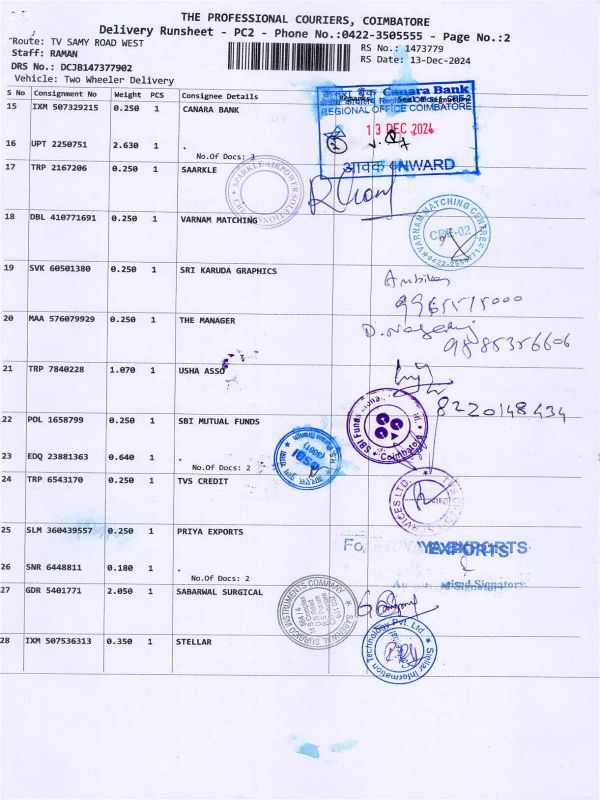 THE PROFESSIONAL COURIERS, COIMBATORE
Delivery Runsheet - PC2 - Phone No.:0422-3505555 - Page No.:2
Route: TV SAMY ROAD WEST
Staff: RAMAN
DRS No.: DCJB147377902
Vehicle: Two Wheeler Delivery
RS No.: 1473779
RS Date: 13-Dec-2024
S No Consignment No Weight PCS Consignee Details
15 IXM 507329215 0.250 1 CANARA BANK
केनरा बैंक Canara Bank
REGIONAL OFFICE COIMBATORE
13 DEC 2024
आवक INWARD
16 UPT 2250751 2.630 1 .
No.Of Docs: 2
17 TRP 2167206 0.250 1 SAARKLE
18 DBL 410771691 0.250 1 VARNAM MATCHING
VARNAM MATCHING CENTRE
CBE-02
19 SVK 60501380 0.250 1 SRI KARUDA GRAPHICS
20 MAA 576079929 0.250 1 THE MANAGER
21 TRP 7840228 1.070 1 USHA ASSO
8220148434
22 POL 1658799 0.250 1 SBI MUTUAL FUNDS
SBI Funds
Coimbatore
23 EDQ 23881363 0.640 1 .
No.Of Docs: 2
SBI
24 TRP 6543170 0.250 1 TVS CREDIT
SERVICES LTD.
25 SLM 360439557 0.250 1 PRIYA EXPORTS
For PRIYA EXPORTS
26 SNR 6448811 0.180 1 .
No.Of Docs: 2
Authorised Signatory
27 GDR 5401771 2.050 1 SABARWAL SURGICAL
INSTRUMENTS COMPANY
28 IXM 507536313 0.350 1 STELLAR
Stellar Information Technology Pvt. Ltd.